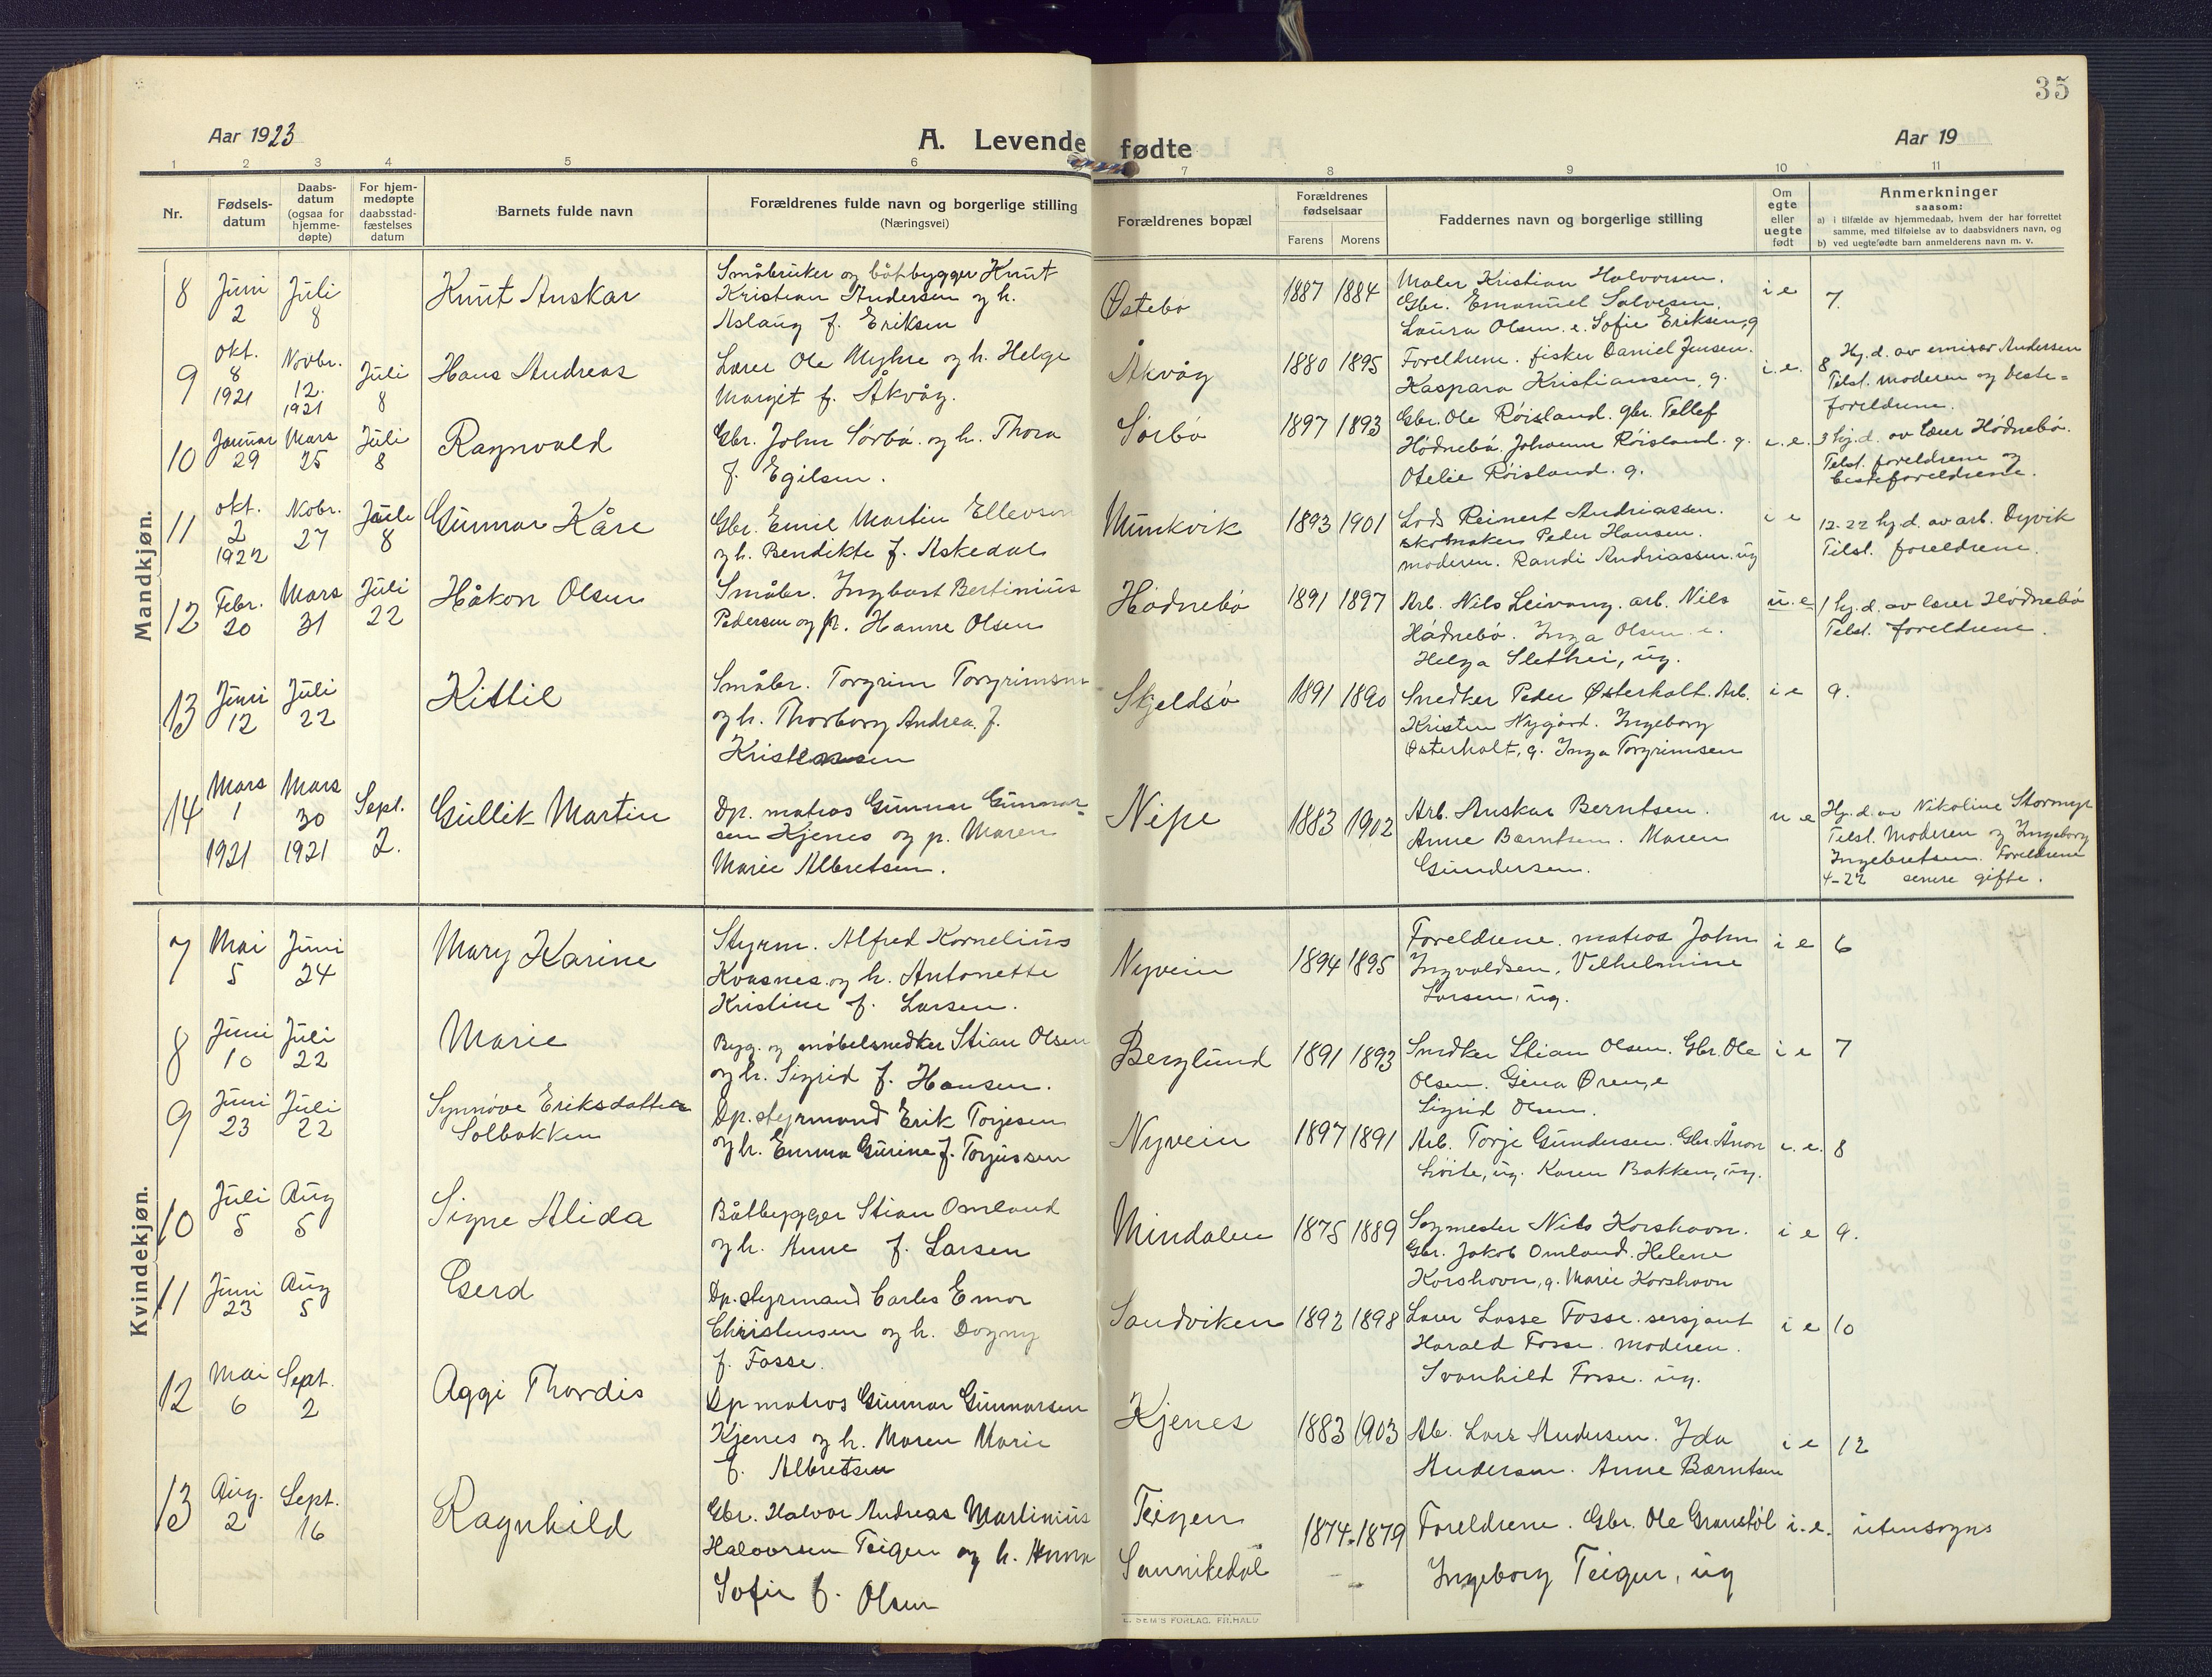 35
Aar 1923
A. Levende fødte
Aar 19
1 2 3 4 5 6 7 8 9 10 11
Nr.
Fødsels-
datum
Daabs-
datum
(ogsaa for
hjemme-
døpte)
For hjem-
medøpte
daabsstad-
fæstelses
datum
Barnets fulde navn
Forældrenes fulde navn og borgerlige stilling
(Næringsvei)
Forældrenes bopæl
Forældrenes
fødselsaar
Farens Morens
Faddernes navn og borgerlige stilling
Om
egte
eller
uegte
født
Anmerkninger
saasom:
a) i tilfælde av hjemmedaab, hvem der har forrettet
samme, med tilføielse av to daabsvidners navn, og
b) ved uegtefødte barn anmelderens navn m. v.
Mandkjøn.
8
Juni
2
Juli
8
Knut Anskar
Småbruker og båtbygger Knut
Kristian Andersen og h.
Aslaug f. Eriksen
Østebø
1887 1884
Maler Kristian Halvorsen.
Gbr. Emanuel Salvesen.
Laura Olsen. e. Sofie Eriksen, g
i e
7.
9
Okt.
8
1921
Novbr.
12.
1921
Juli
8
Hans Andreas
Lærer Ole Myhre og h. Helge
Margit f. Åkvåg.
Åkvåg
1880 1895
Foreldrene. fisker Daniel Jensen.
Kaspara Kristiansen, g.
i. e.
8 Hj. d. av emisær Andersen
Tilst. moderen og beste=
foreldrene.
10
Januar
29
Mars
25
Juli
8
Ragnvald
Gbr. John Sørbø. og h. Thora
f. Egilsen.
Sørbø
1897 1893
Gbr. Ole Røisland. gbr. Tellef
Hødnebø. Johanne Røisland. g.
Otelie Røisland. g.
i. e.
3 hj. d. av lærer Hødnebø.
Tilst. foreldrene og
besteforeldrene.
11
Okt.
2
1922
Nobr.
27
Juli
8
Gunnar Kåre
Gbr. Emil Martin Ellevsen
og h. Bendikte f. Askedal
Munkvik
1893 1901
Lods Reinert Andriassen.
skomaker Peder Hansen.
moderen. Randi Andriassen. ug
i e
12-22 hj. d. av arb. Dyvik
Tilst. foreldrene.
12
Febr.
20
Mars
31
Juli
22
Håkon Olsen
Småbr. Ingbart Bertinius
Pedersen og p. Hanne Olsen
Hødnebø
1891 1897
Arb. Nils Leivang. arb. Nils
Hødnebø. Inga Olsen e.
Helga Slethei, ug.
u. e
1 hj. d. av lærer Hødnebø
Tilst. foreldrene.
13
Juni
12
Juli
22
Kittil
Småbr. Torgrim Torgrimsen
og h. Thorborg Andrea. f.
Kristensen
Skjeldsø
1891 1890
Snedker Peder Østerholt. Arb.
Kristen Nygård. Ingeborg
Østerholt, g. Inga Torgrimsen
i e
9.
14
Mars
1
1921
Mars
30
1921
Sept.
2.
Gullik Martin
Dp. matros Gunnar Gunnar=
sen Kjenes og p. Maren
Marie Albretsen.
Nipe
1883 1902
Arb. Anskar Berntsen.
Anne Bærntsen. Maren
Gundersen.
u e
Hj. d. av Nikoline Stormyr
Tilst. Moderen og Ingeborg
Ingebretsen. Foreldrene
4-22 senere gifte.
Kvindekjøn.
7
Mai
5
Juni
24
Mary Karine
Styrm. Alfred Kornelius
Kvasnes. og h. Antonette
Kristine f. Larsen.
Nyvein
1894 1895
Foreldrene. matros John
Ingvaldsen. Vilhelmine
Larsen, ug.
i e
6
8
Juni
10
Juli
22
Marie
Byg. og møbelsnedker Stian Olsen
og h. Sigrid f. Hansen.
Berglund
1891 1893
Snedker Stian Olsen. Gbr. Ole
Olsen. Gina Ørenge
Sigrid Olsen.
i e
7
9
Juni
23
Juli
22
Synnøve Eriksdatter
Solbakken
Dp. styrmand Erik Torjesen
og h. Emma Gurine f. Torjussen
Nyvein
1897 1891
Arb. Torje Gundersen. Gbr. Ånon
Løite, ug. Karen Bakken, ug.
i. e.
8
10
Juli
5
Aug
5
Signe Alida
Båtbygger Stian Omland
og h. Anne f. Larsen
Mindalen
1875 1889
Sagmester Nils Korshavn.
Gbr. Jakob Omland. Helene
Korshavn, g. Marie Korshavn
i e
9.
11
Juni
23
Aug
5
Gerd
Dp. styrmand Carles Emor
Christensen og h. Dagny
f. Fosse.
Sandviken
1892 1898
Lærer Lasse Fosse. sersjant
Harald Fosse. Moderen.
Svanhild Fosse. ug.
i e
10
12
Mai
6
Sept.
2
Aggi Thordis
Dp matros Gunnar Gunnarsen
Kjenes og h. Maren Marie
f. Albretsen
Kjenes
1883 1903
Ab. Lars Andersen. Ida
Andersen. Anne Bærntsen
i e
12
13
Aug.
2
Sept.
16
Ragnhild
Gbr. Halvor Andreas Martinius
Halvorsen Teigen og h. Anna
Sofie f. Olsen
Teigen
Sannikedal
1874. 1879
Foreldrene. Gbr. Ole Granstøl
Ingeborg Teigen, ug
i. e.
utensogns
E. SEM'S FORLAG. FR.HALD